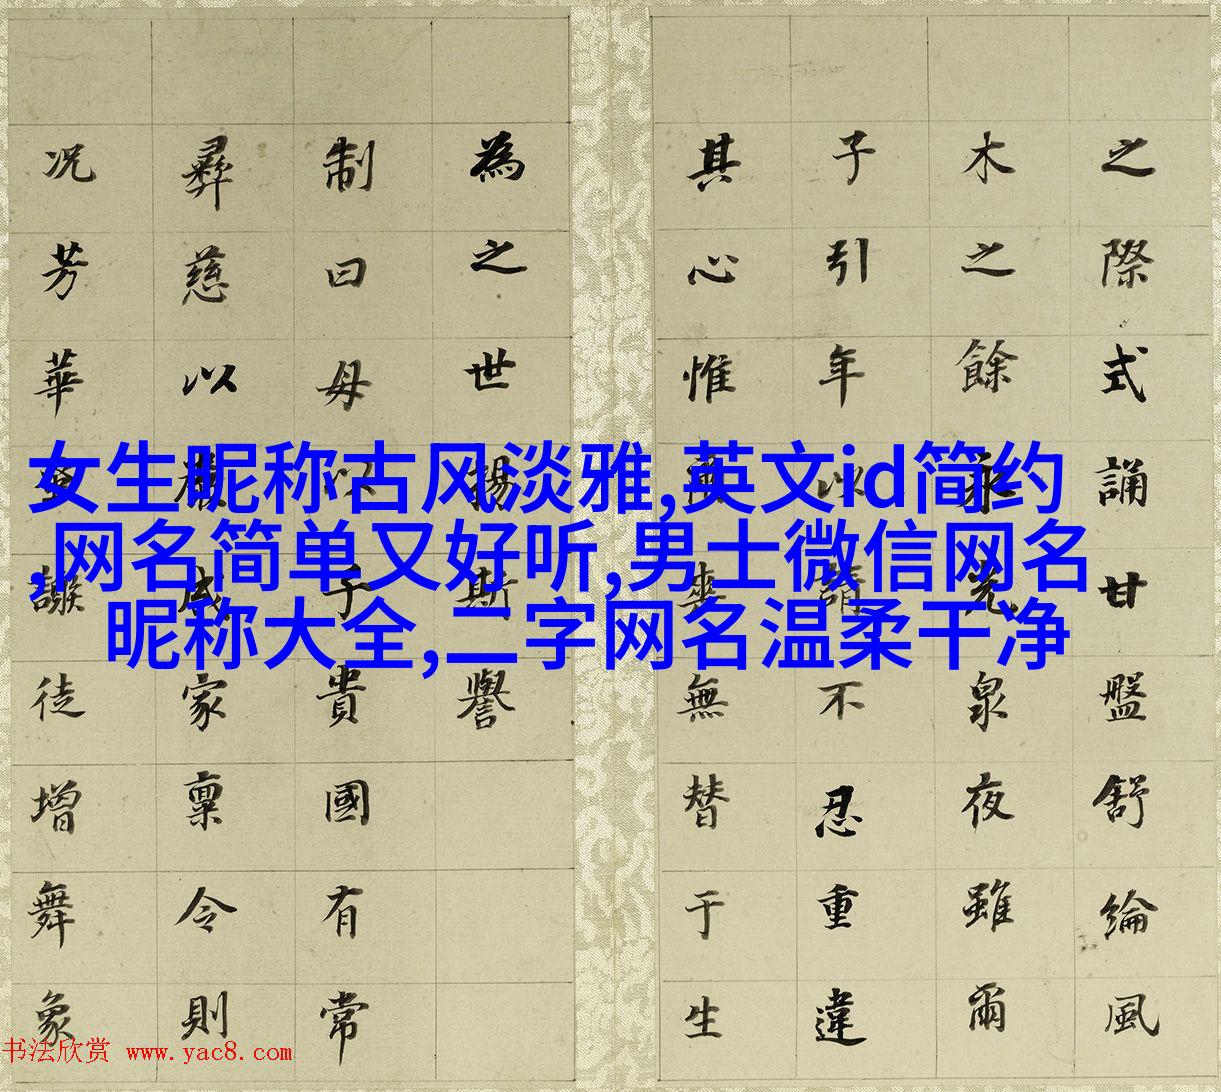 之際式誦甘盤舒綸風
木之餘永光泉夜雖爾
子引年以請不忍重違
其心惟無替于生
為之世揚斯譽
制曰母以子貴國有常
彝慈以成家稟令則
况芳華徒增舞象
女生昵称古风淡雅,英文id简约
,网名简单又好听,男士微信网名
昵称大全,二字网名温柔干净
书法欣赏 www.yac8.com